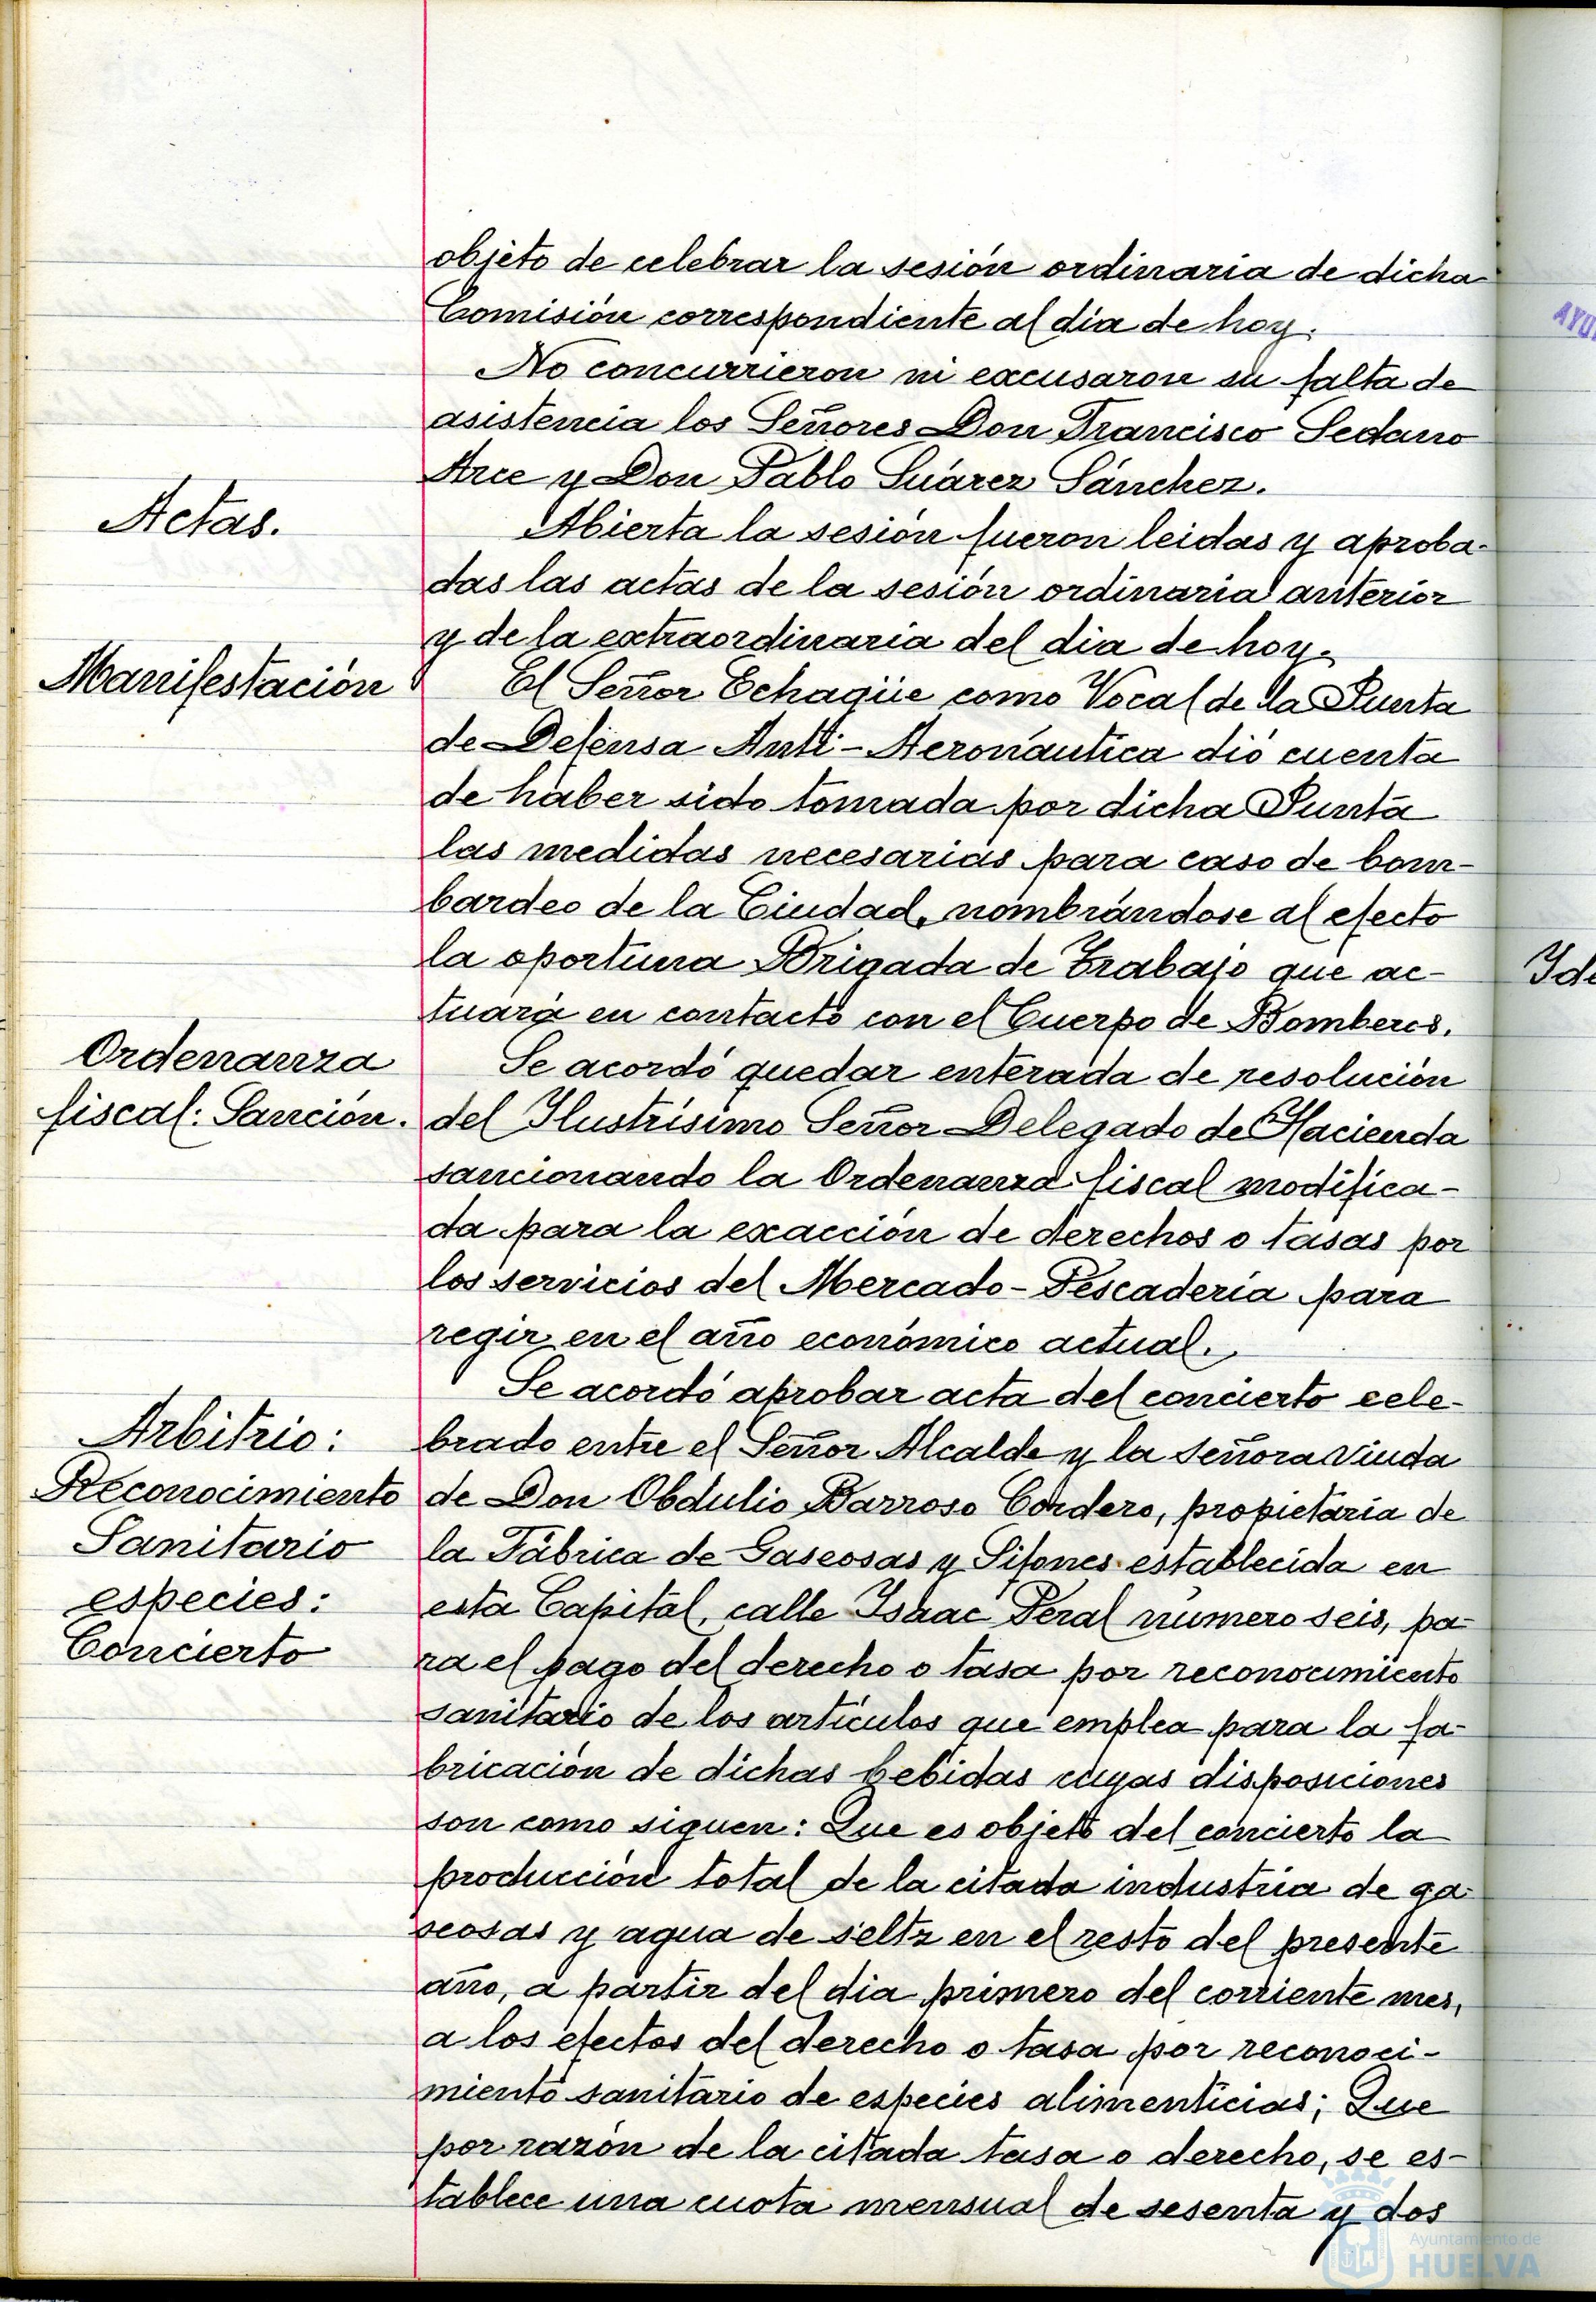 objeto de celebrar la sesión ordinaria de dicha
Comisión correspondiente al dia de hoy.
No concurrieron ni excusaron su falta de
asistencia los Señores Don Francisco Sedano
Arce y Don Pablo Suárez Sánchez.
Actas.
Abierta la sesión fueron leidas y aproba-
das las actas de la sesión ordinaria anterior
y de la extraordinaria del dia de hoy.
Manifestación
El Señor Echagüe como Vocal de la Junta
de Defensa Anti-Aeronáutica dió cuenta
de haber sido tomada por dicha Junta
las medidas necesarias para caso de bom-
bardeo de la Ciudad, nombrándose al efecto
la oportuna Brigada de Trabajo que ac-
tuará en contacto con el Cuerpo de Bomberos.
Ordenanza
fiscal: Sanción.
Se acordó quedar enterada de resolución
del Ilustrísimo Señor Delegado de Hacienda
sancionando la Ordenanza fiscal modifica-
da para la exacción de derechos o tasas por
los servicios del Mercado-Pescadería para
regir en el año económico actual.
Arbitrio:
Reconocimiento
Sanitario
especies:
Concierto
Se acordó aprobar acta del concierto cele-
brado entre el Señor Alcalde y la señora viuda
de Don Obdulio Barroso Cordero, propietaria de
la Fábrica de Gaseosas y Sifones establecida en
esta Capital, calle Isaac Peral número seis, pa-
ra el pago del derecho o tasa por reconocimiento
sanitario de los artículos que emplea para la fa-
bricación de dichas bebidas cuyas disposiciones
son como siguen: Que es objeto del concierto la
producción total de la citada industria de ga-
seosas y agua de seltz en el resto del presente
año, a partir del dia primero del corriente mes,
a los efectos del derecho o tasa por reconoci-
miento sanitario de especies alimenticias; Que
por razón de la citada tasa o derecho, se es-
tablece una cuota mensual de sesenta y dos
AYU
Ide
Ayuntamiento de
HUELVA